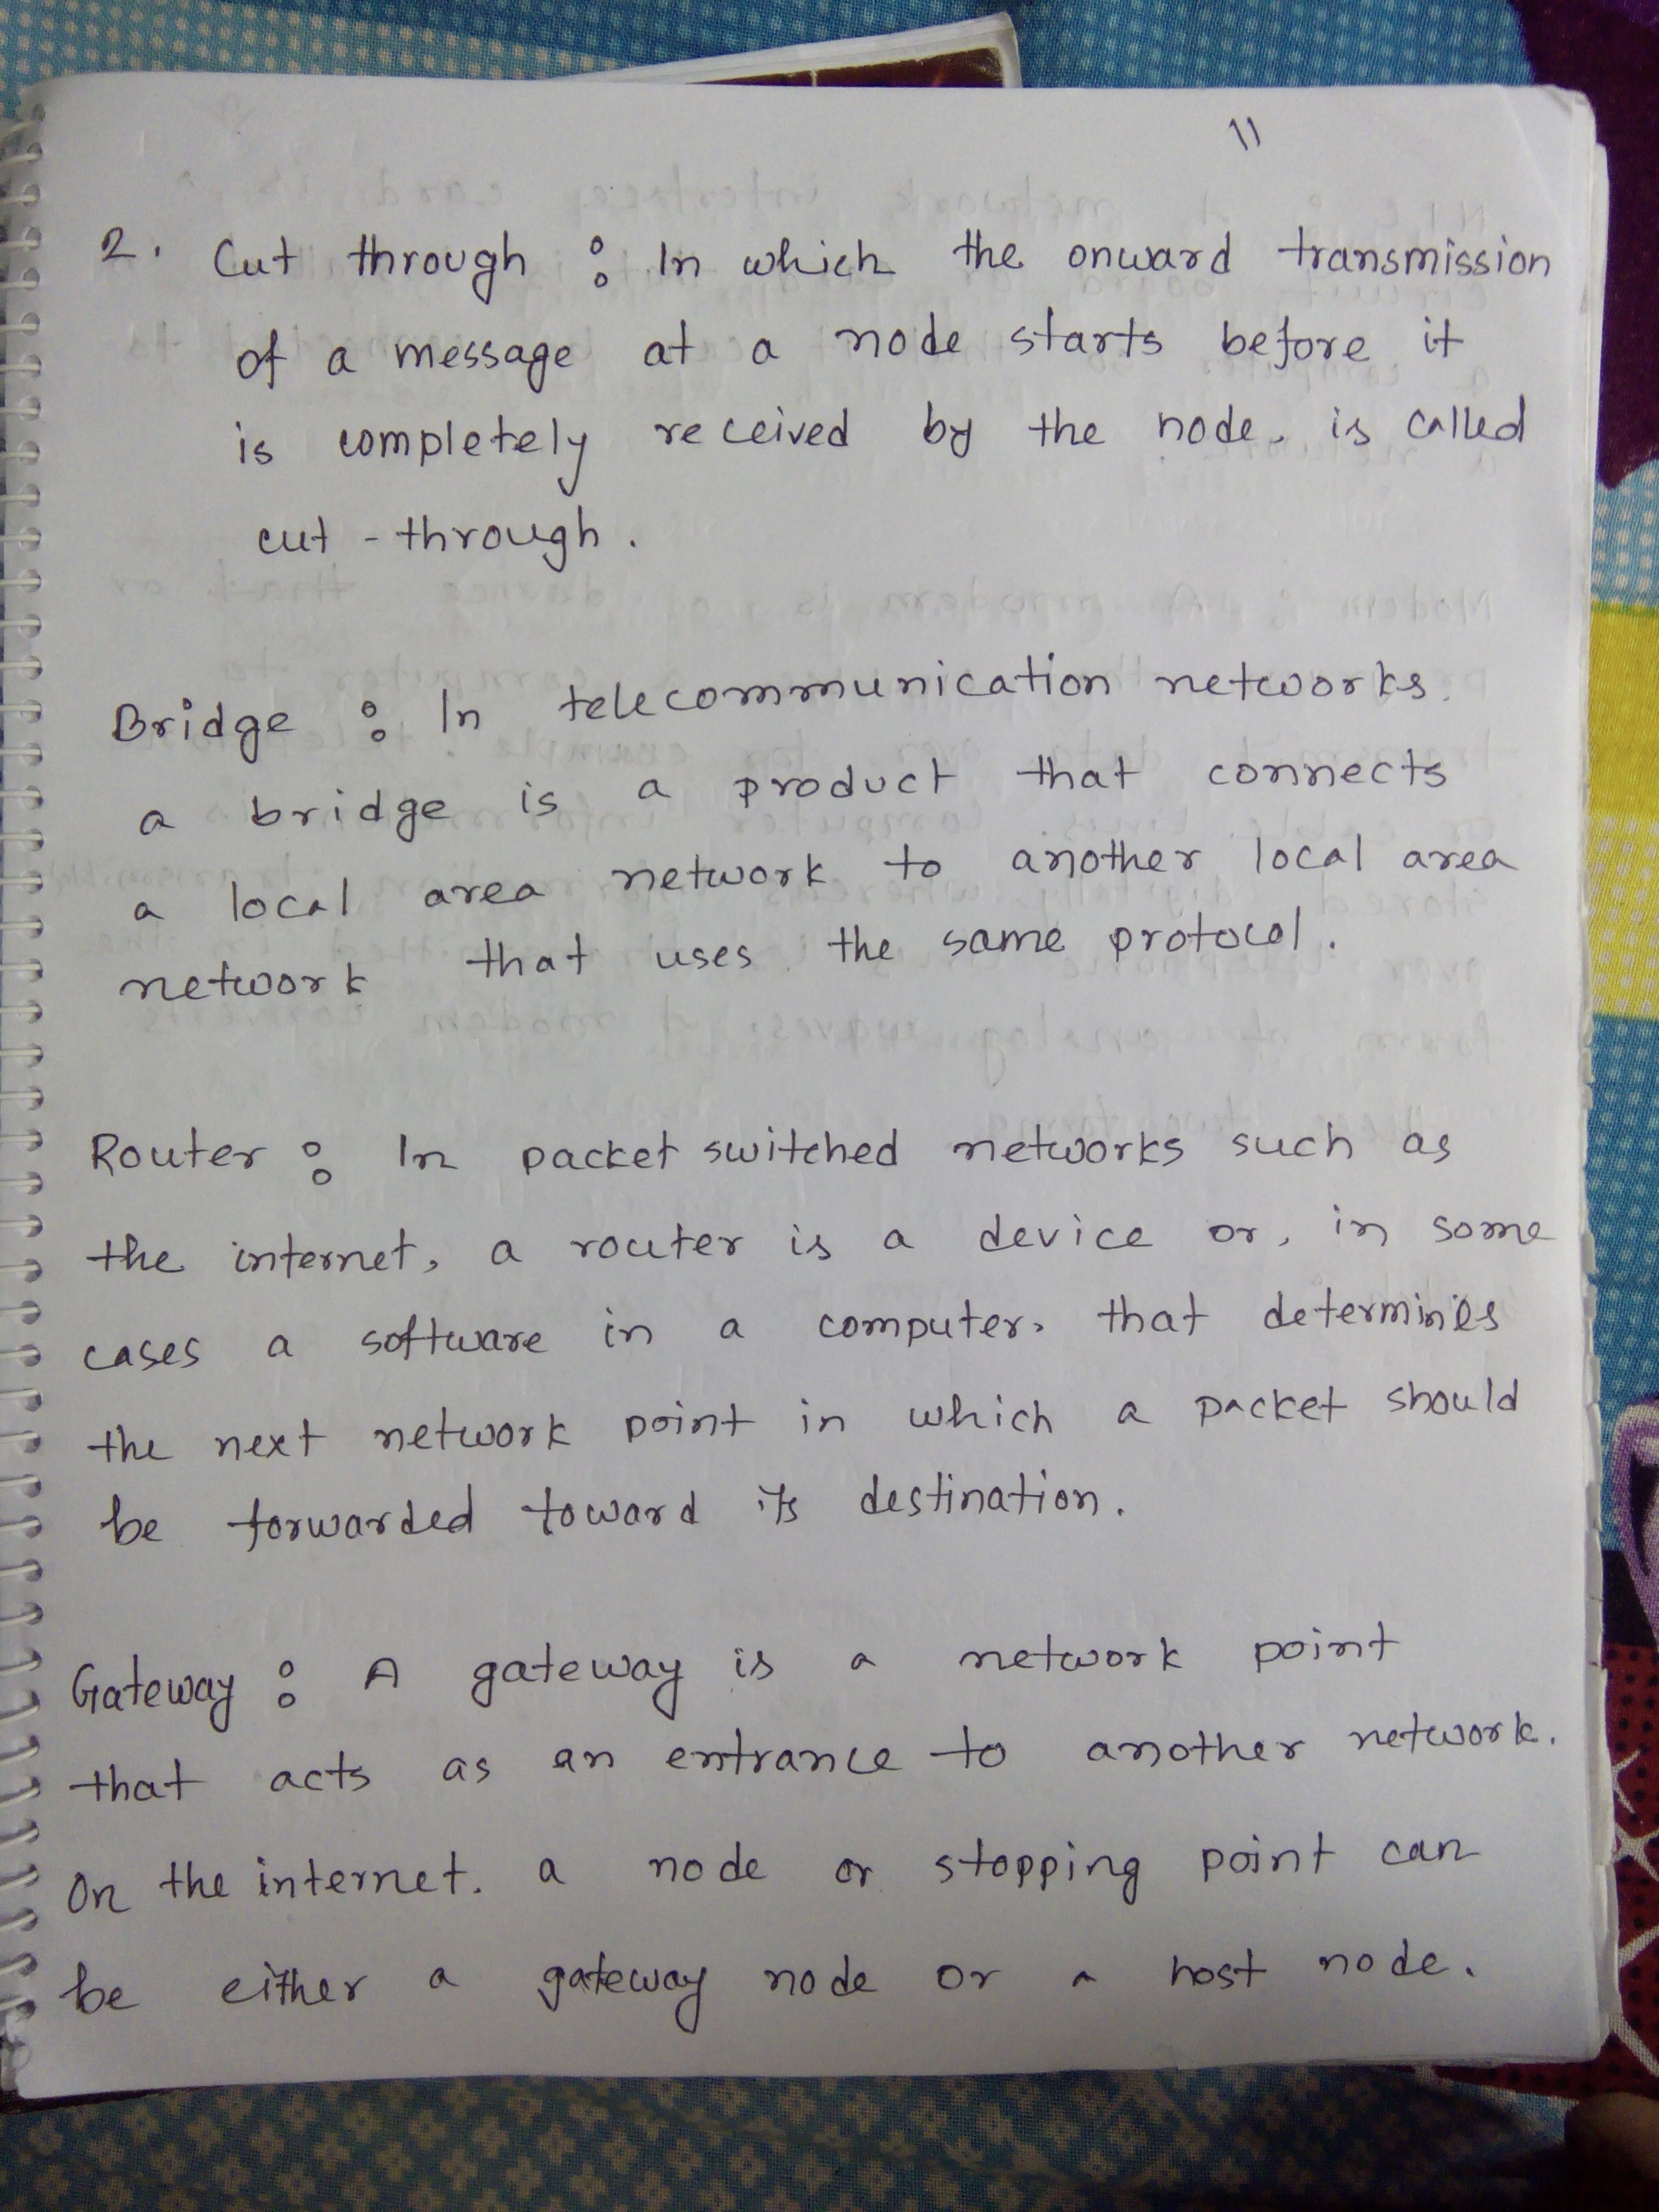 11
2. Cut through : In which the onward transmission
of a message at a node starts before it
is completely received by the node, is called
cut - through.
Bridge : In telecommunication networks.
a bridge is a product that connects
a local area network to another local area
network that uses the same protocol.
Router : In packet switched networks such as
the internet, a router is a device or, in some
cases a software in a computer, that determines
the next network point in which a packet should
be forwarded toward its destination.
Gateway : A gateway is a network point
that acts as an entrance to another network.
On the internet. a node or stopping point can
be either a gateway node or a host node.